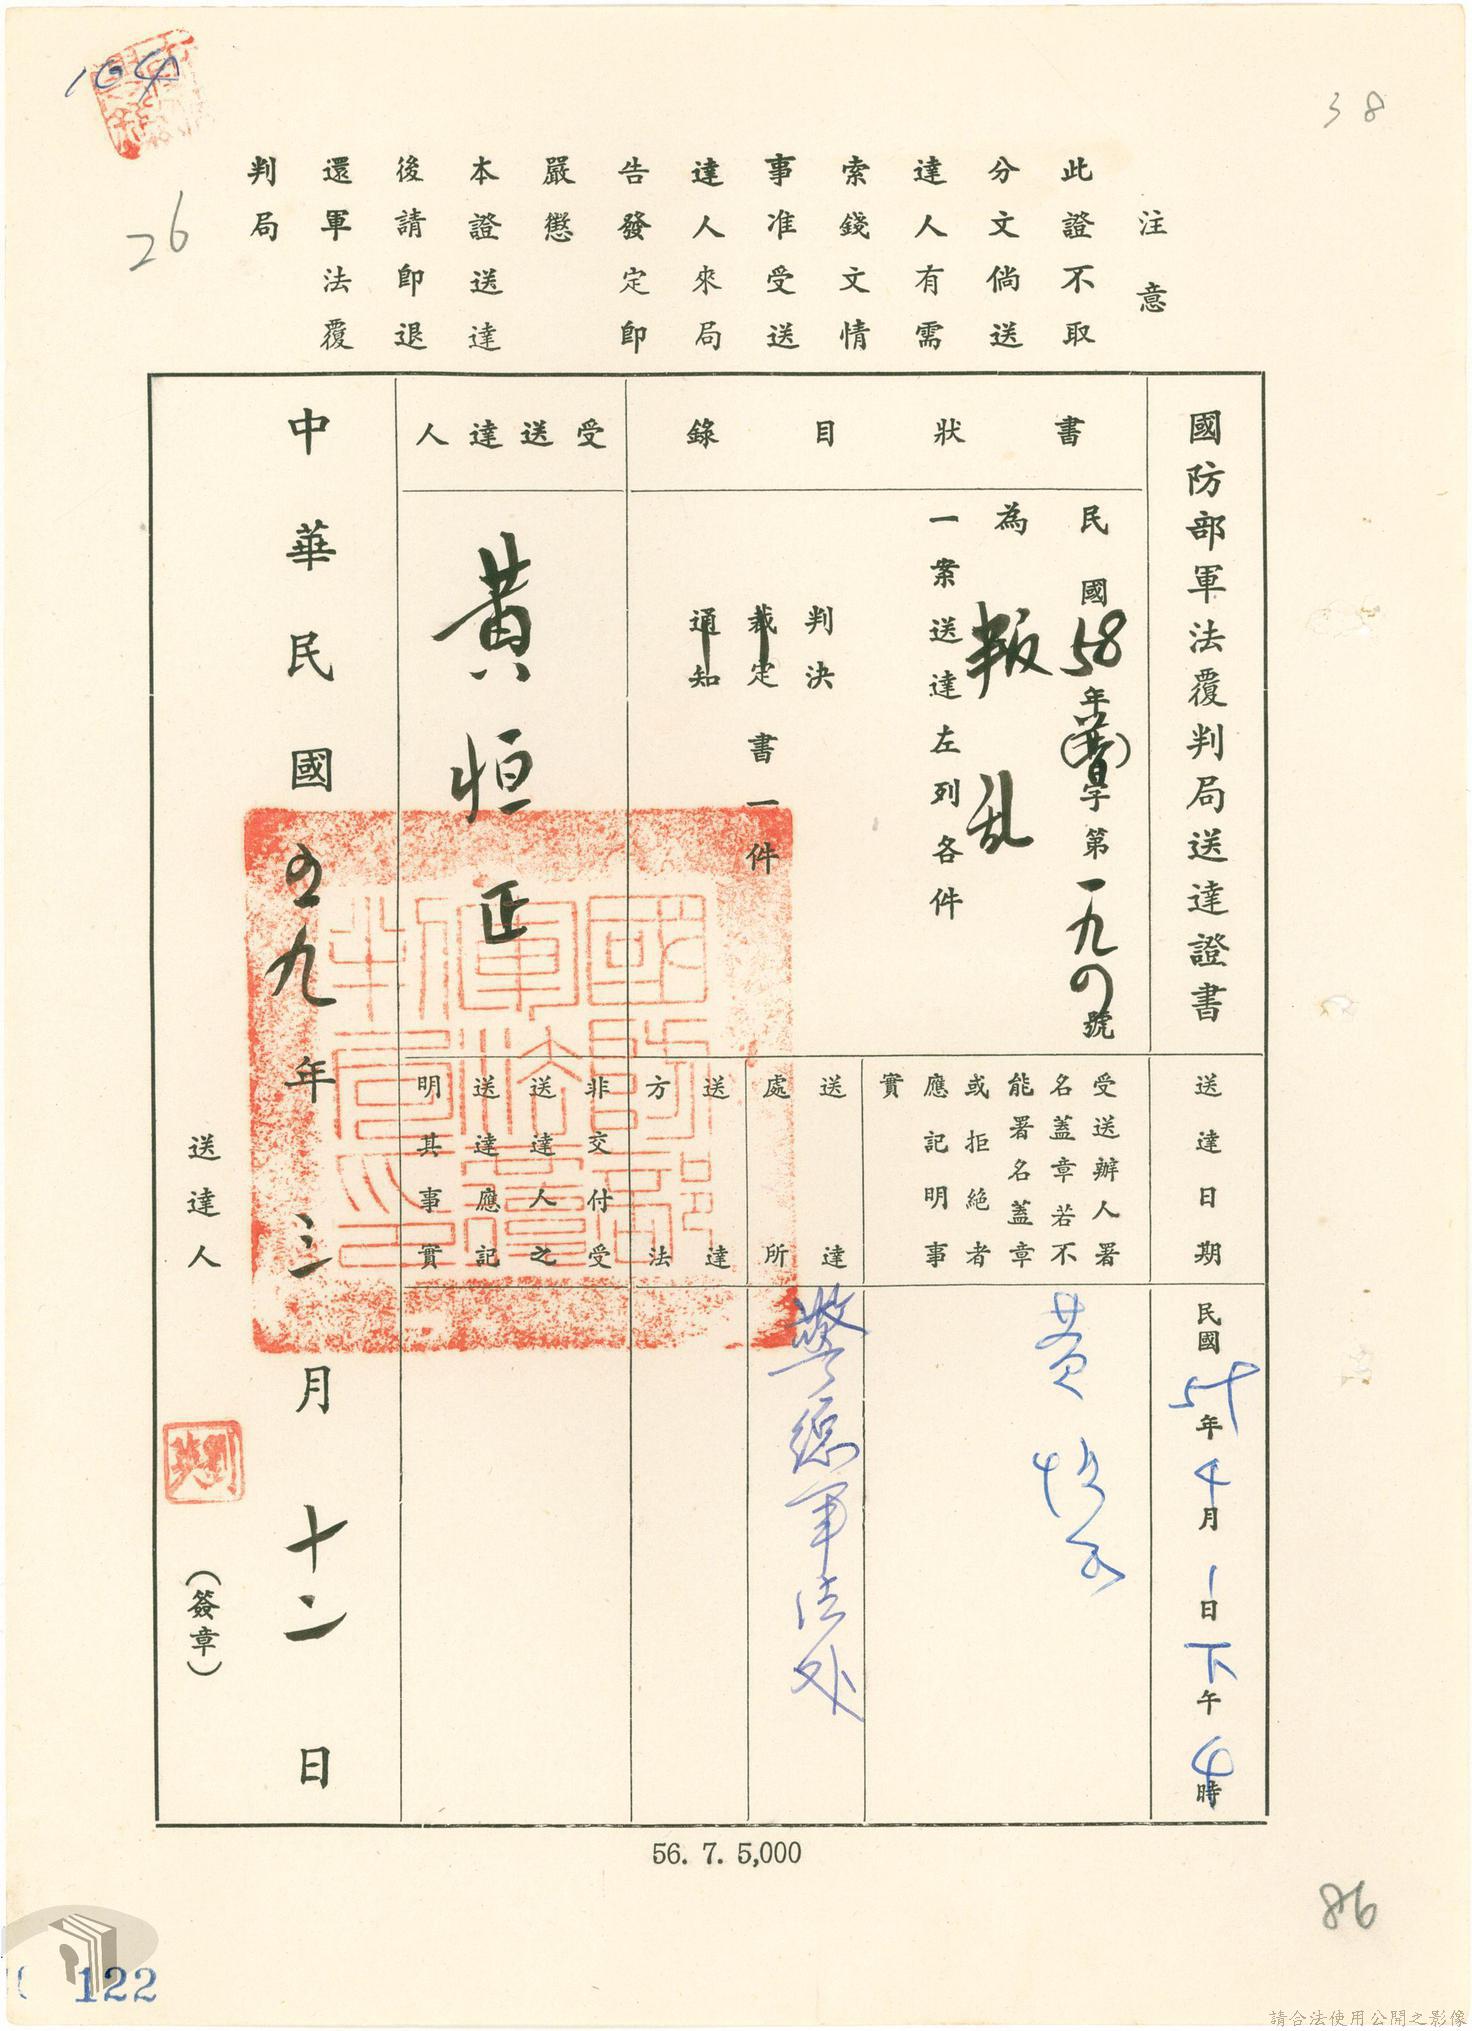 38
26
注意
此證不取
分文倘送
達人有需
索錢文情
事准受送
達人來局
告發定即
嚴懲
本證送達
後請即退
還軍法覆
判局
國防部軍法覆判局送達證書
書狀目錄
民國58年(普)字第一九〇號
為叛乱
一案送達左列各件
判決
裁定書一件
通知
受送達人
黃恒正
送達日期
民國59年4月1日下午4時
受送辦人署
名蓋章若不
能署名蓋章
或拒絕者
應記明事
實
黃恒正
送達
處所
警總軍法处
送達
方法
非交付受
送達人之
送達應記
明其事實
中華民國五九年三月十二日
送達人
(簽章)
國防部軍法覆判局印
56. 7. 5,000
86
122
請合法使用公開之影像